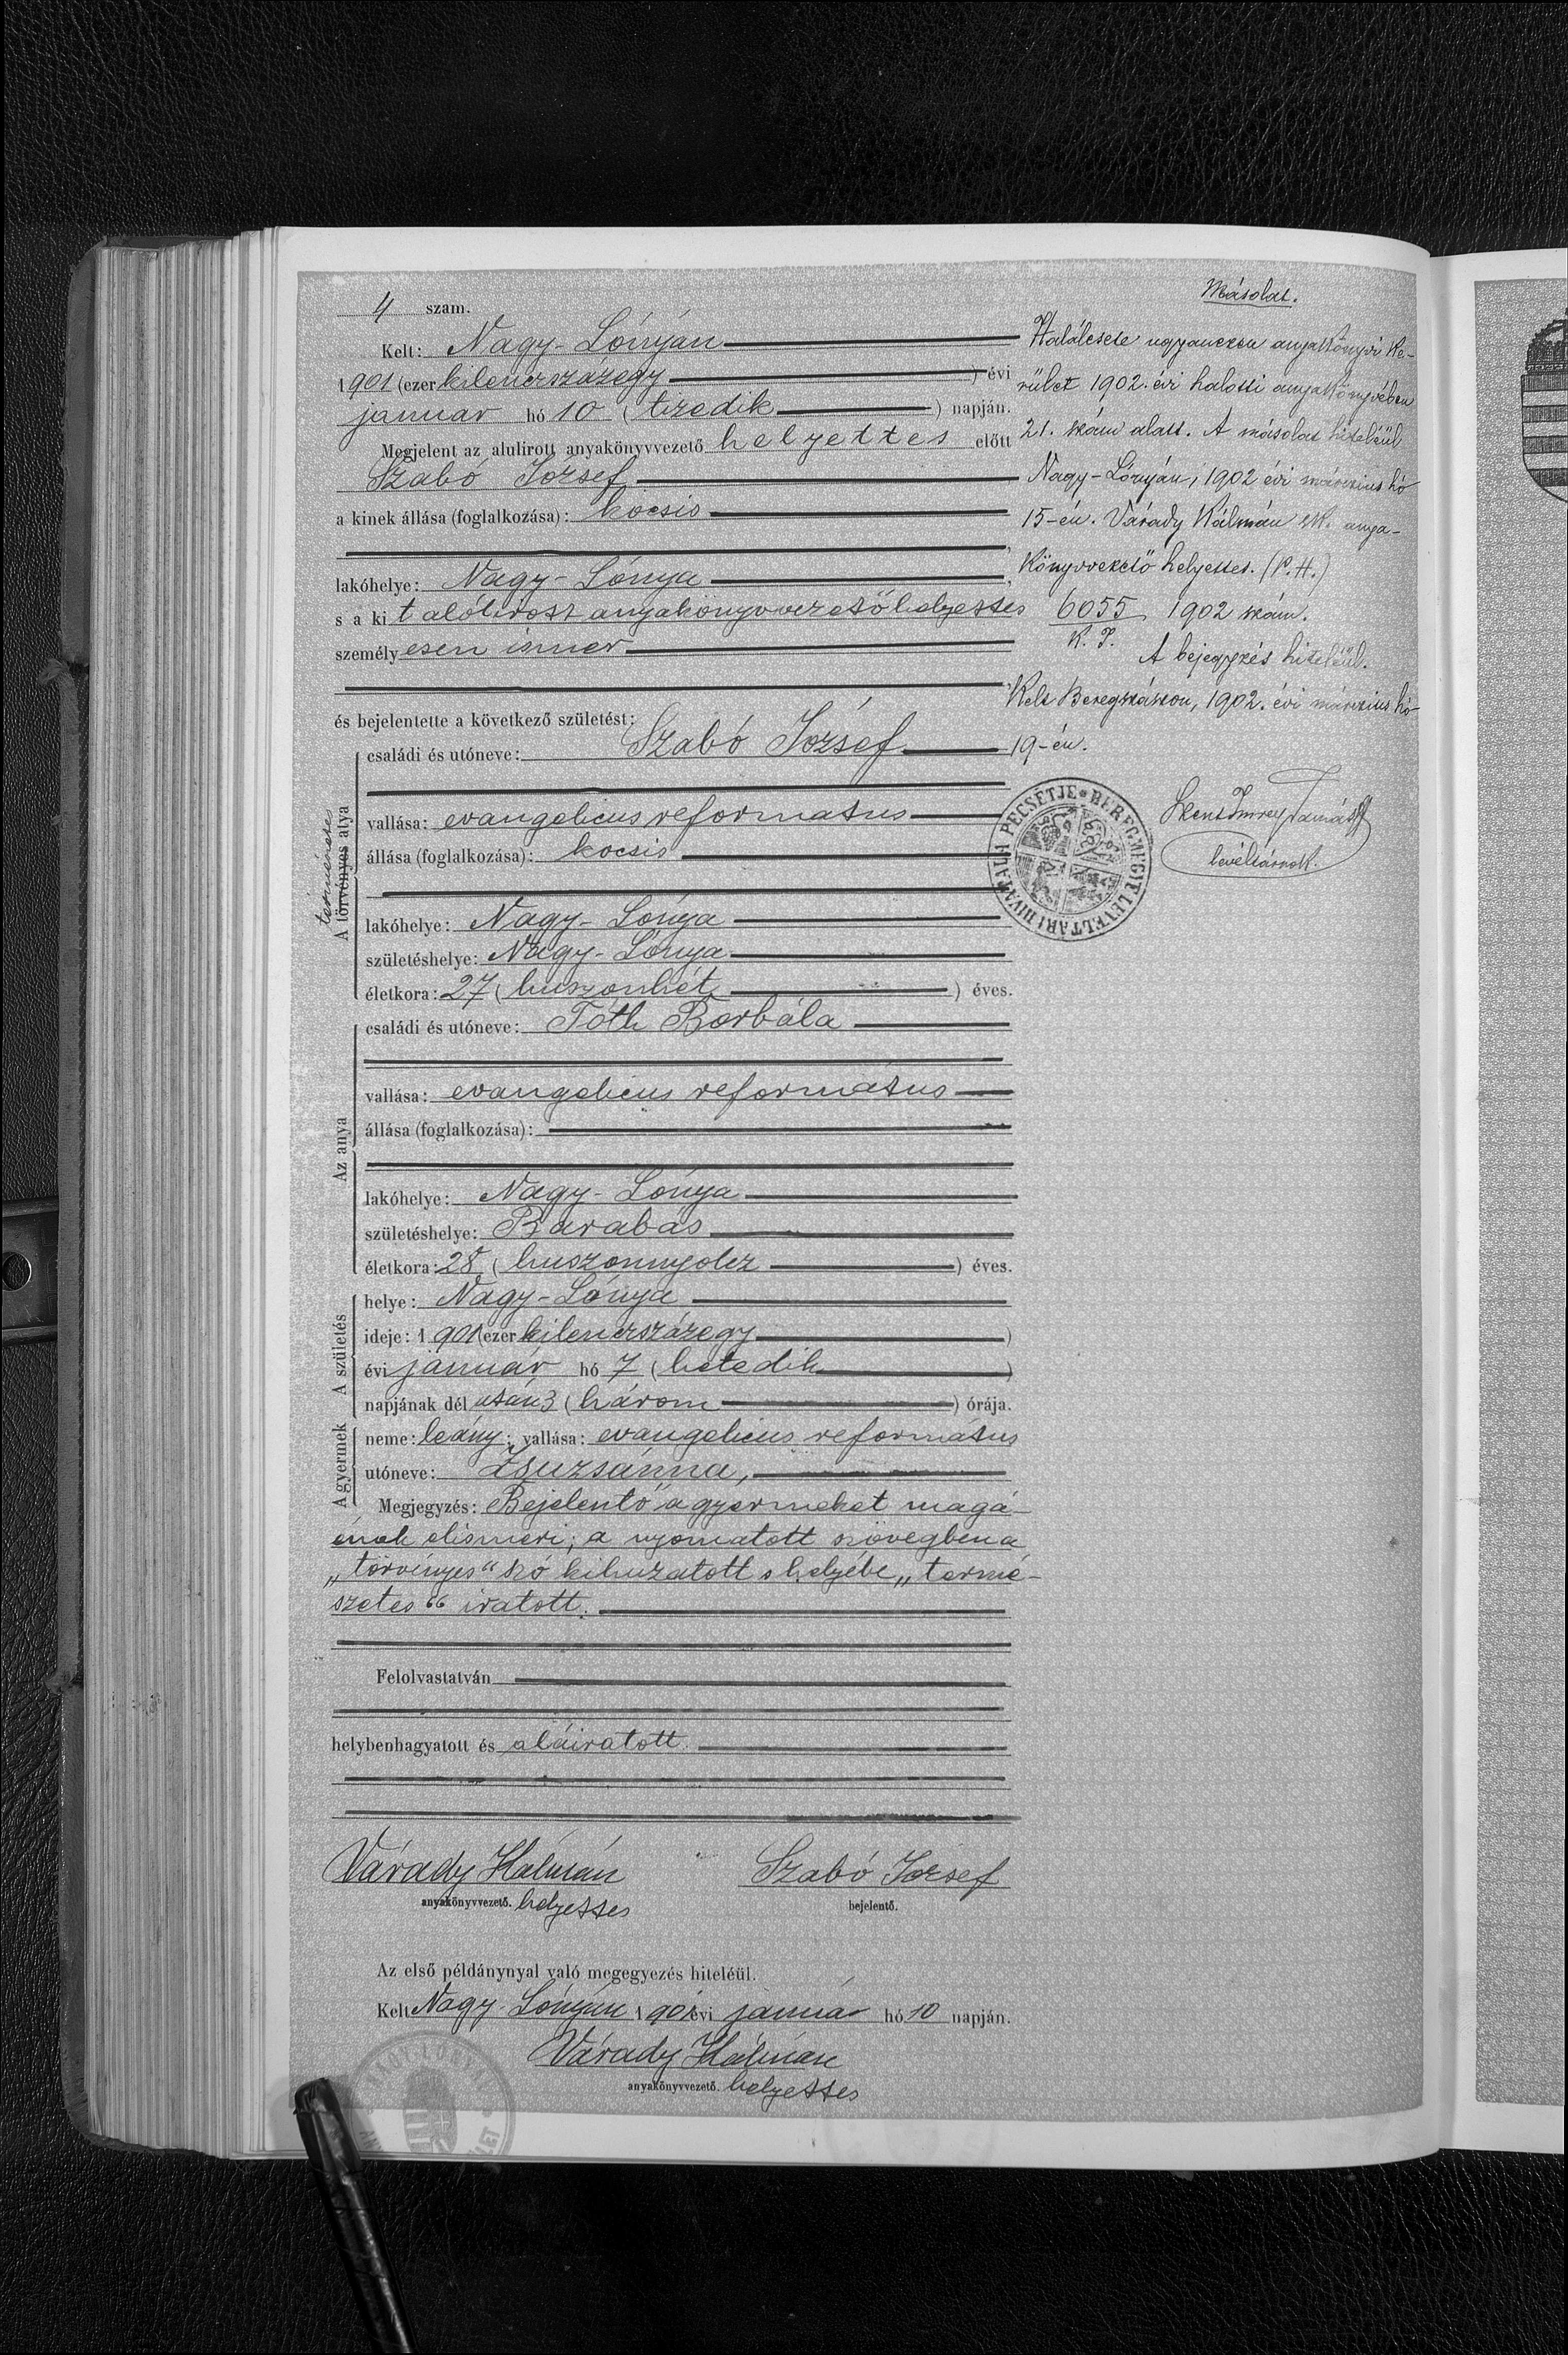 4 szam.
Kelt: Nagy-Lónyán
1901 (ezer kilenczszázegy) évi
január hó 10 (tizedik) napján.
Megjelent az alulirott anyakönyvvezető helyettes előtt
Szabó József
a kinek állása (foglalkozása): kocsis
lakóhelye: Nagy-Lónya
s a kit alólirott anyakönyvvezető helyettes
személyesen ismer
és bejelentette a következő születést:
A törvényes atya
természetes
családi és utóneve: Szabó József
vallása: evangelicus reformatus
állása (foglalkozása): kocsis
lakóhelye: Nagy-Lónya
születéshelye: Nagy-Lónya
életkora: 27 (huszonhét) éves.
Az anya
családi és utóneve: Tóth Borbála
vallása: evangelicus református
állása (foglalkozása):
lakóhelye: Nagy-Lónya
születéshelye: Barabás
életkora: 28 (huszonnyolcz) éves.
A születés
helye: Nagy-Lónya
ideje: 1901 (ezer kilenczszázegy)
évi január hó 7 (hetedik)
napjának dél után 3 (három) órája.
A gyermek
neme: leány; vallása: evangelicus református
utóneve: Zsuzsánna,
Megjegyzés: Bejelentő a gyermeket magá-
énak elismeri; a nyomatott szövegben a
„törvényes" szó kihuzatott s helyébe „termé-
szetes" iratott.
Felolvastatván
helybenhagyatott és aláiratott.
Várady Kálmán
anyakönyvvezető. helyettes
Szabó József
bejelentő.
Az első példánynyal való megegyezés hiteléül.
Kelt Nagy-Lónyán 1901 évi január hó 10 napján.
Várady Kálmán
anyakönyvvezető. helyettes
Másolat.
Halálesete ugyanezen anyakönyvi ke-
rület 1902. évi halotti anyakönyvében
21. szám alatt. A másolat hiteléül
Nagy-Lónyán, 1902 évi márczius hó
15-én. Várady Kálmán sk. anya-
könyvvezető helyettes. (P.H.)
6055 1902 szám.
K. I.
A bejegyzés hiteléül.
Kelt Beregszászon, 1902. évi márczius hó
19-én.
BEREGMEGYE LEVÉLTÁRI HIVATALA PECSÉTJE
Szentimrey Tamás
levéltárnok.